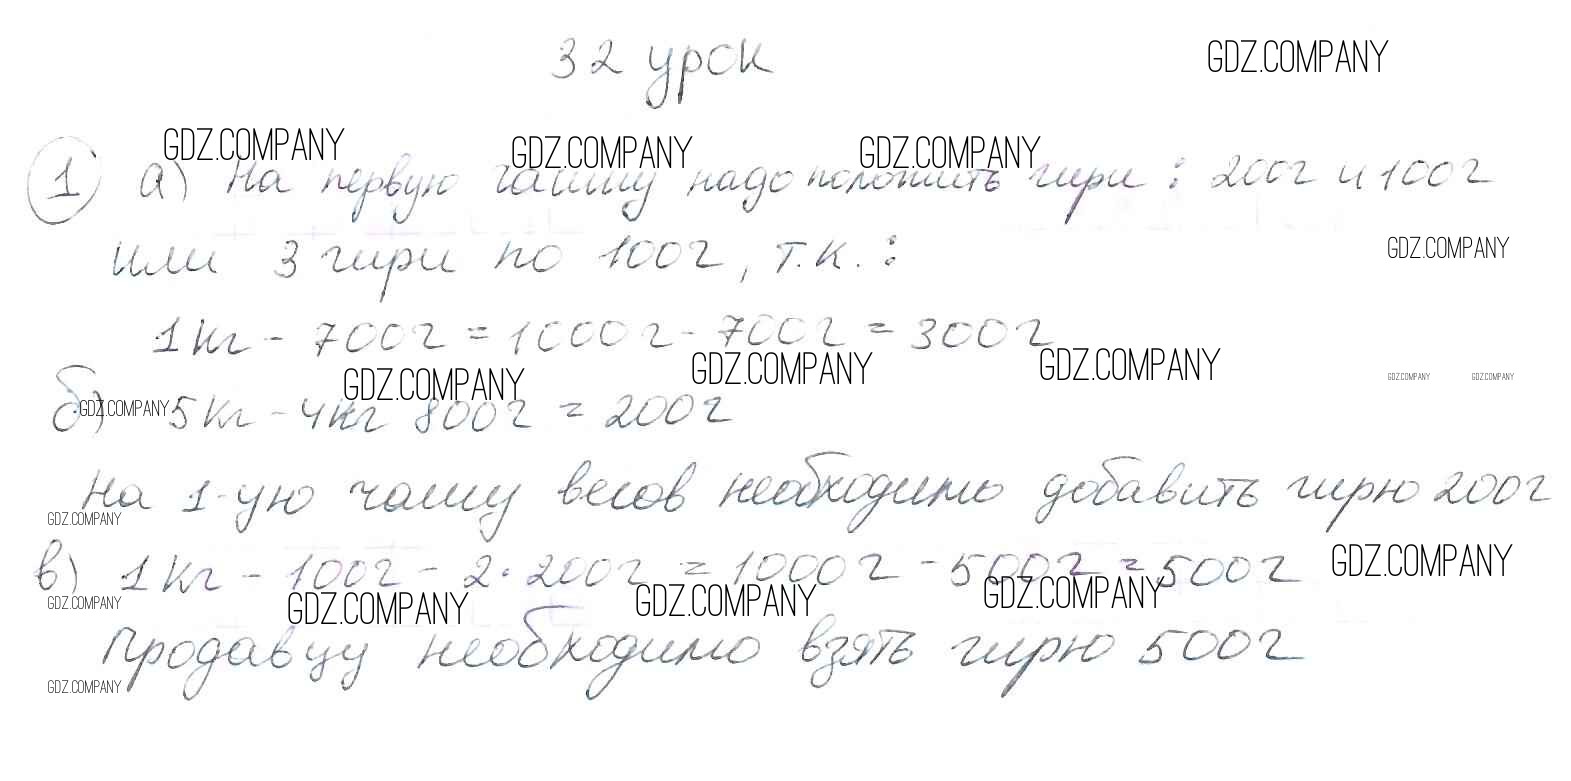 32 урок
GDZ.COMPANY
GDZ.COMPANY GDZ.COMPANY GDZ.COMPANY
1 а) На первую чашу надо положить гири : 200г и 100г
или 3 гири по 100г, т.к. :
GDZ.COMPANY
1кг - 700г = 1000г - 700г = 300г
GDZ.COMPANY GDZ.COMPANY GDZ.COMPANY
GDZ.COMPANY GDZ.COMPANY
б) 5кг - 4кг 800г = 200г
GDZ.COMPANY
На 1-ую чашу весов необходимо добавить гирю 200г
GDZ.COMPANY
в) 1кг - 100г - 2·200г = 1000г - 500г = 500г
GDZ.COMPANY
GDZ.COMPANY GDZ.COMPANY GDZ.COMPANY GDZ.COMPANY
Продавцу необходимо взять гирю 500г
GDZ.COMPANY